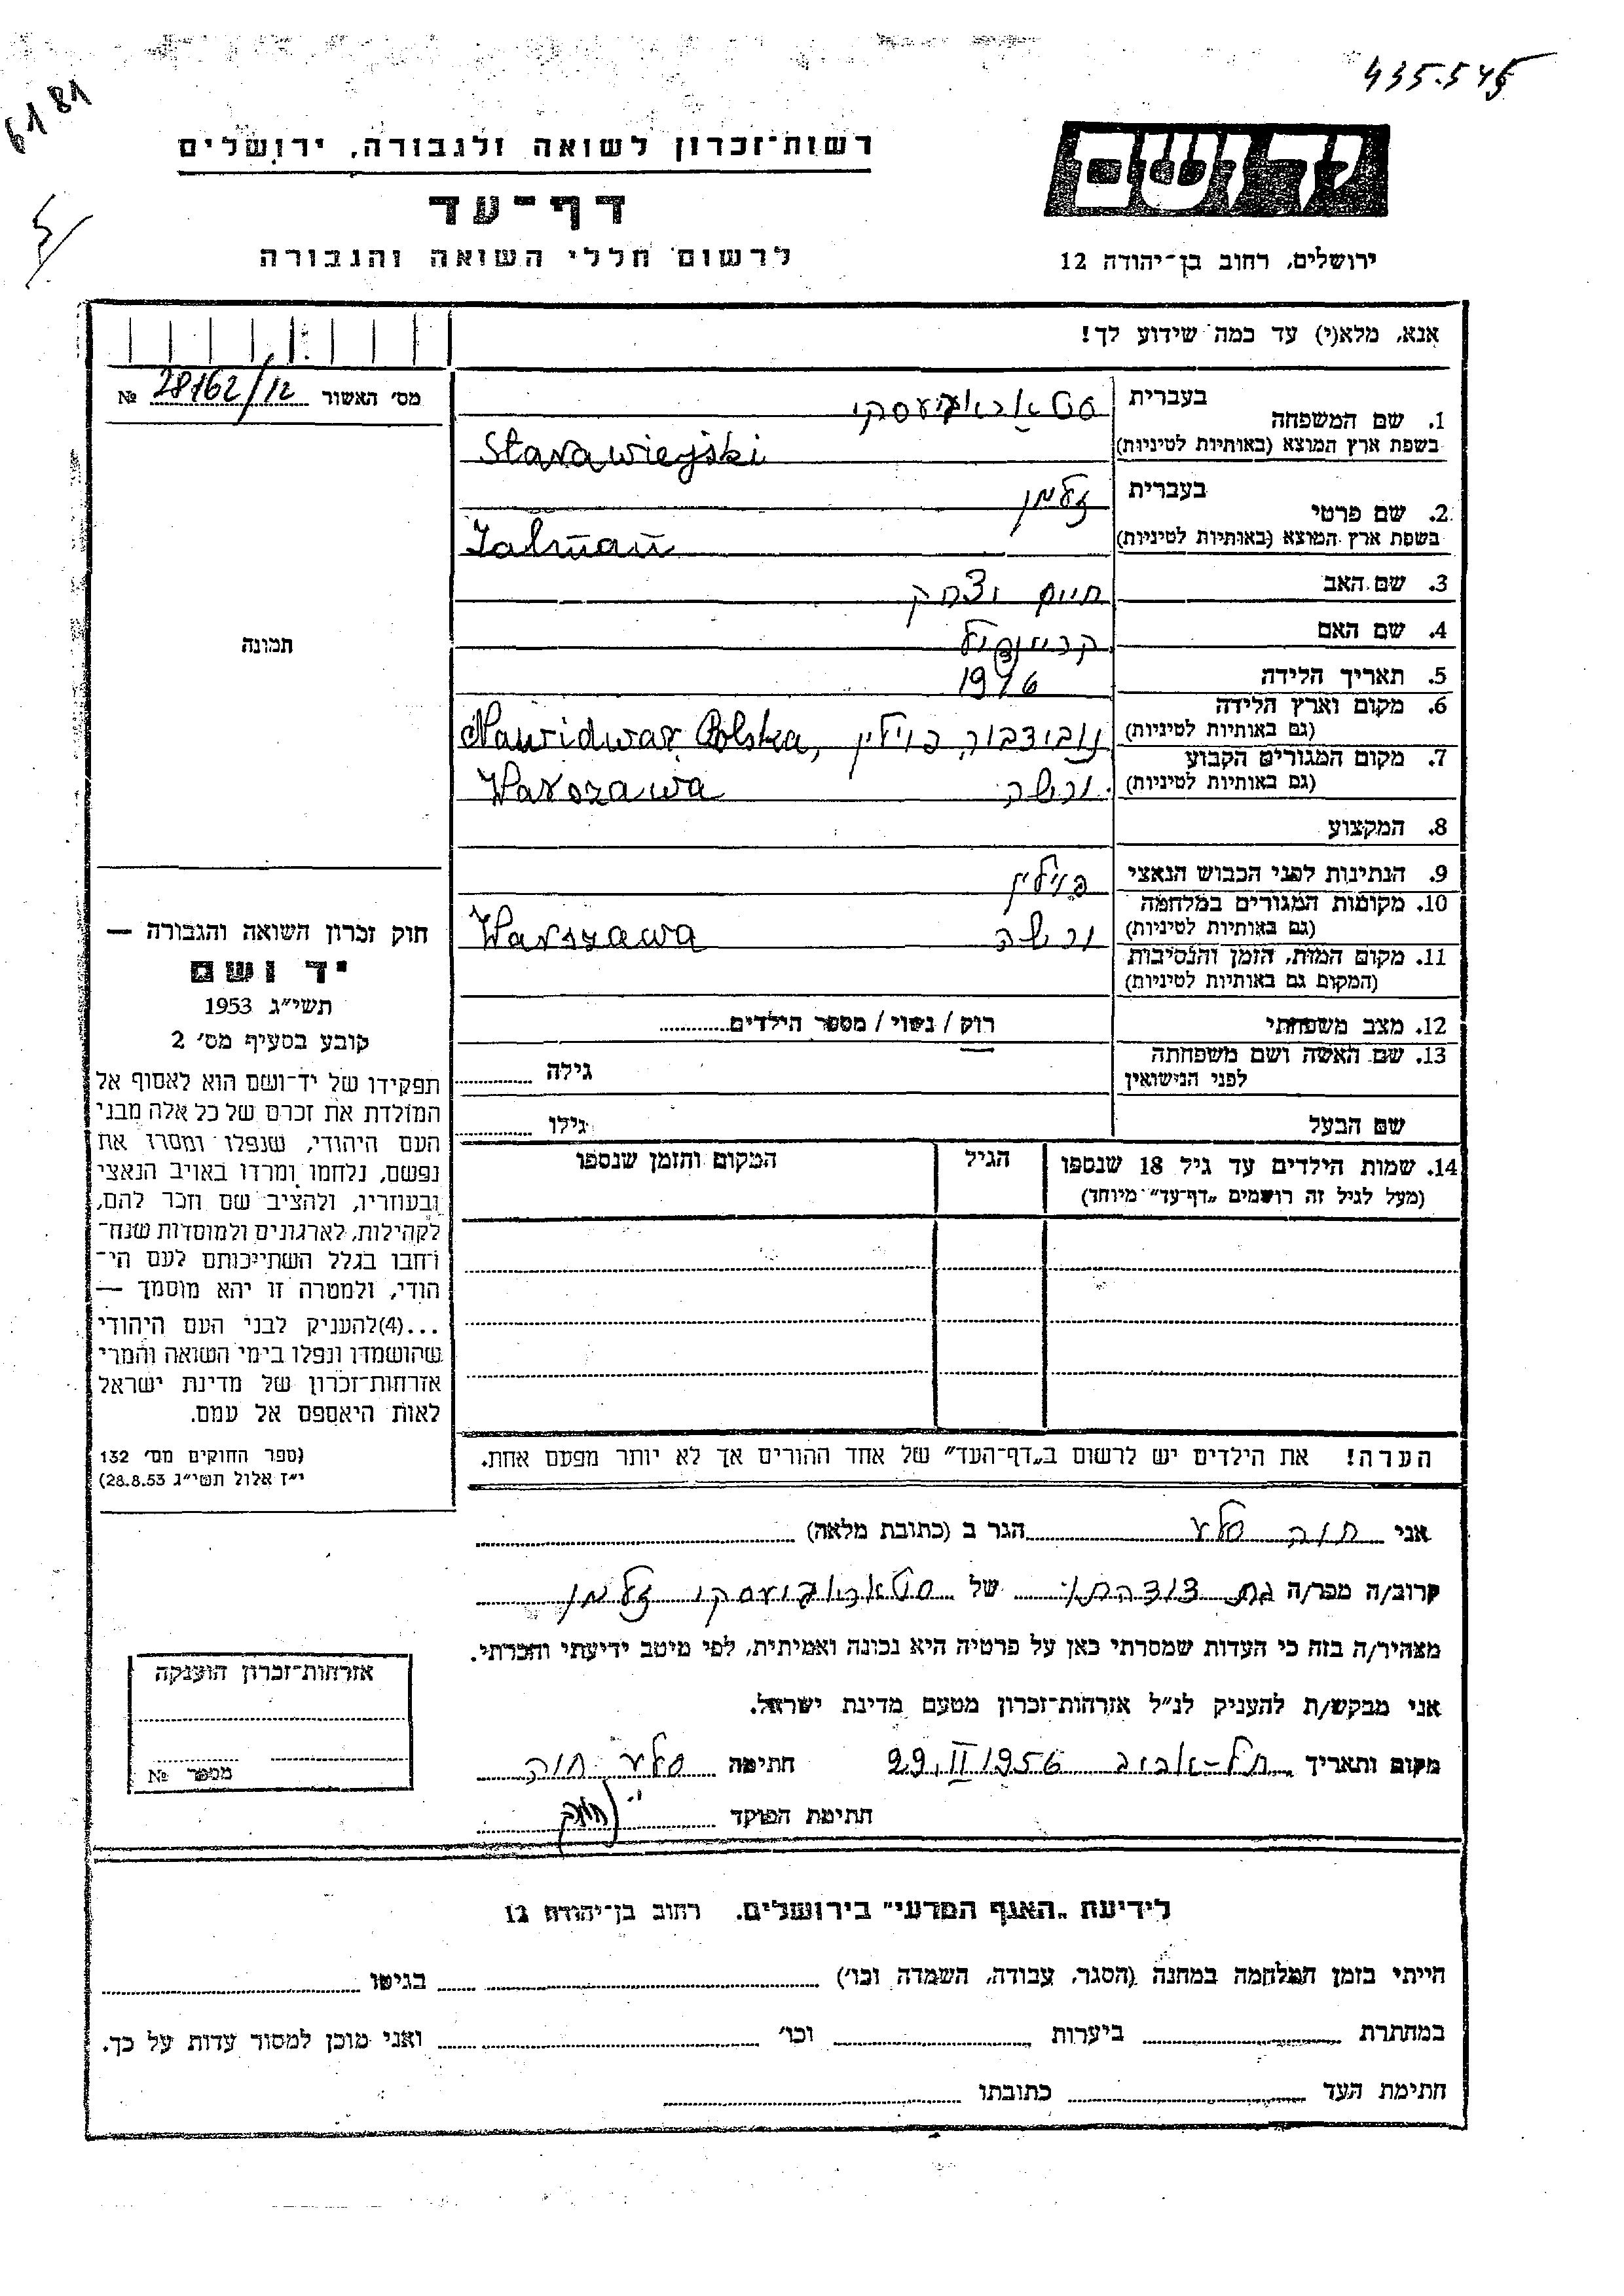 435.545
6181
רשות־זכרון לשואה ולגבורה, ירושלים
דף־עד
לרשום חללי השואה והגבורה
יד ושם
ירושלים, רחוב בן־יהודה 12
אנא, מלא(י) עד כמה שידוע לך!
מס׳ האשור 28162/12 №
1. שם המשפחה בעברית סטאראוויעסקי
בשפת ארץ המוצא (באותיות לטיניות) Starawiejski
2. שם פרטי בעברית זלמן
בשפת ארץ המוצא (באותיות לטיניות) Zalman
3. שם האב חיים יצחק
4. שם האם
5. תאריך הלידה 1916
6. מקום וארץ הלידה (גם באותיות לטיניות) נובידבור, פוילין Nawidwar Polska,
7. מקום המגורים הקבוע (גם באותיות לטיניות) ורשה Warszawa
8. המקצוע
9. הנתינות לפני הכבוש הנאצי פוילין
10. מקומות המגורים במלחמה (גם באותיות לטיניות) ורשה Warszawa
11. מקום המות, הזמן והנסיבות (המקום גם באותיות לטיניות)
12. מצב משפחתי רוק / נשוי / מספר הילדים
13. שם האשה ושם משפחתה לפני הנישואין גילה
שם הבעל גילו
14. שמות הילדים עד גיל 18 שנספו הגיל המקום והזמן שנספו
(מעל לגיל זה רושמים „דף־עד״ מיוחד)
הערה! את הילדים יש לרשום ב„דף־העד״ של אחד ההורים אך לא יותר מפעם אחת.
תמונה
חוק זכרון השואה והגבורה —
יד ושם
תשי״ג 1953
קובע בסעיף מס׳ 2
תפקידו של יד־ושם הוא לאסוף אל
המולדת את זכרם של כל אלה מבני
העם היהודי, שנפלו ומסרו את
נפשם, נלחמו ומרדו באויב הנאצי
ובעוזריו, ולהציב שם וזכר להם,
לקהילות, לארגונים ולמוסדות שנח־
רחבו בגלל השתייכותם לעם הי־
הודי, ולמטרה זו יהא מוסמך —
...(4)להעניק לבני העם היהודי
שהושמדו ונפלו בימי השואה והמרי
אזרחות־זכרון של מדינת ישראל
לאות היאספם אל עמם.
(ספר החוקים מס׳ 132
י״ז אלול תשי״ג 28.8.53)
אני חוה סלע הגר ב (כתובת מלאה)
קרוב/ה מכר/ה בת של סטאראוויעסקי זלמן
מצהיר/ה בזה כי העדות שמסרתי כאן על פרטיה היא נכונה ואמיתית, לפי מיטב ידיעתי והכרתי.
אני מבקש/ת להעניק לנ״ל אזרחות־זכרון מטעם מדינת ישראל.
מקום ותאריך תל-אביב 29.II 1956 חתימה סלע חוה
חתימת הפוקד
אזרחות־זכרון הוענקה
מספר №
לידיעת „האגף המדעי״ בירושלים. רחוב בן־יהודה 12
הייתי בזמן המלחמה במחנה (הסגר, עבודה, השמדה וכו׳) בגיטו
במחתרת ביערות וכו׳ ואני מוכן למסור עדות על כך.
חתימת העד כתובתו